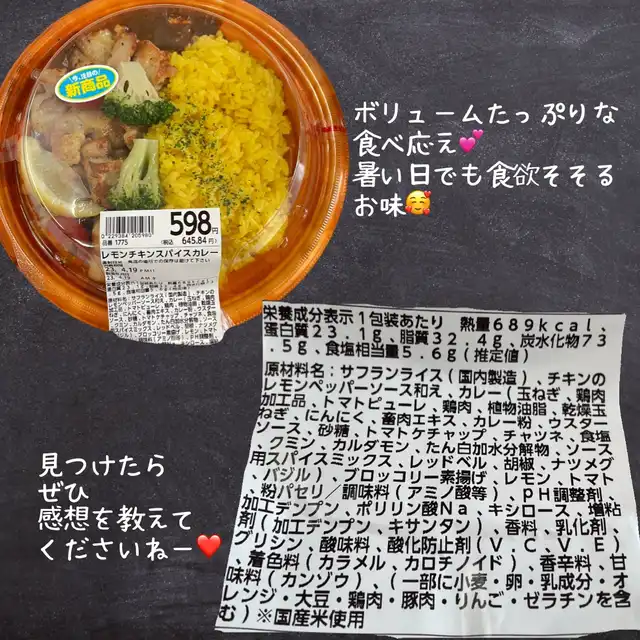 今、注目の！
新商品
ボリュームたっぷりな
食べ応え💕
暑い日でも食欲そそる
お味🥰
598円
品番 1775 (税込 645.84円)
レモンチキンスパイスカレー
23. 4.19
栄養成分表示１包装あたり 熱量６８９kcal、
蛋白質２３．１g、脂質３２．４g、炭水化物７３
．５g、食塩相当量５．６g(推定値)
原材料名：サフランライス(国内製造)、チキンの
レモンペッパーソース和え、カレー(玉ねぎ、鶏肉
加工品、トマトピューレ、鶏肉、植物油脂、乾燥玉
ねぎ、にんにく、畜肉エキス、カレー粉、ウスター
ソース、砂糖、トマトケチャップ、チャツネ、食塩
、クミン、カルダモン、たん白加水分解物、ソース
用スパイスミックス、レッドベル、胡椒、ナツメグ
、バジル)、ブロッコリー素揚げ、レモン、トマト
、粉パセリ／調味料(アミノ酸等)、ｐＨ調整剤、
加工デンプン、ポリリン酸Ｎａ、キシロース、増粘
剤(加工デンプン、キサンタン)、香料、乳化剤、
グリシン、酸味料、酸化防止剤(Ｖ．Ｃ、Ｖ．Ｅ)
、着色料(カラメル、カロチノイド)、香辛料、甘
味料(カンゾウ)、(一部に小麦・卵・乳成分・オ
レンジ・大豆・鶏肉・豚肉・りんご・ゼラチンを含
む)※国産米使用
見つけたら
ぜひ
感想を教えて
くださいねー❤️